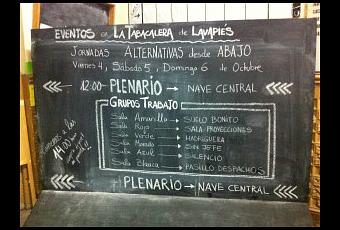 EVENTOS en LA TABACALERA de LAVAPIÉS
JORNADAS ALTERNATIVAS desde ABAJO
Viernes 4, Sábado 5, Domingo 6 de Octubre
12:00 PLENARIO → NAVE CENTRAL
GRUPOS TRABAJO
Sala Amarilla → SUELO BONITO
Sala Roja → SALA PROYECCIONES
Sala Verde → MADRIGUERA
Sala Morada → SIN JEFE
Sala Azul → SILENCIO
Sala Blanca → PASILLO DESPACHOS
a las
14:00
PLENARIO → NAVE CENTRAL